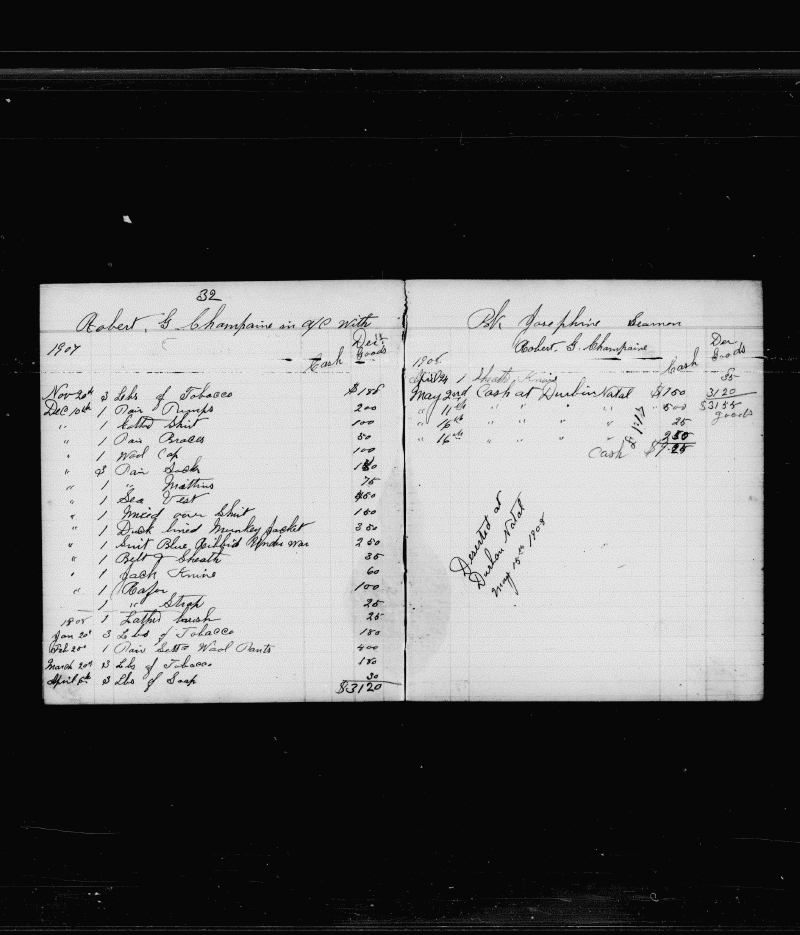 32
Robert, G Champaine in a/c With
1907
Cash Goods
Nov 20th 3 Lbs of Tobacco $180
Dec 10th 1 Pair Pumps 200
" 1 Cotton Shirt 100
" 1 Pair Braces 50
" 1 Wool Cap 100
" 3 Pair Socks
" 1 " 75
" 1 Sea Vest
" 1 Mixed over Shirt 150
" 1 Duck lined Munkey Jacket 350
" 1 Suit Blue 250
" 1 Belt & Sheath 35
" 1 Jack Knive 60
" 1 Razor 100
1 " Strap 25
1908 1 Lather brush 25
Jan 20th 3 Lbs of Tobacco 180
Feb 20th 1 Pair Wool Pants 400
March 20th 3 Lbs of Tobacco 180
April 3 Lbs of Soap 30
$3120
Bk Josephine Seamen
Robert, G. Champaine
1908 Cash Goods
April 1 Sheath Knive 35
May 2nd Cash at Durban Natal $150 3120
" 11th " " " " 500 $3155
" 16th " " " " 25 goods
" 16th " " " " 250
Cash $9.25
Deserted at
Durban Natal
May 15th 1908